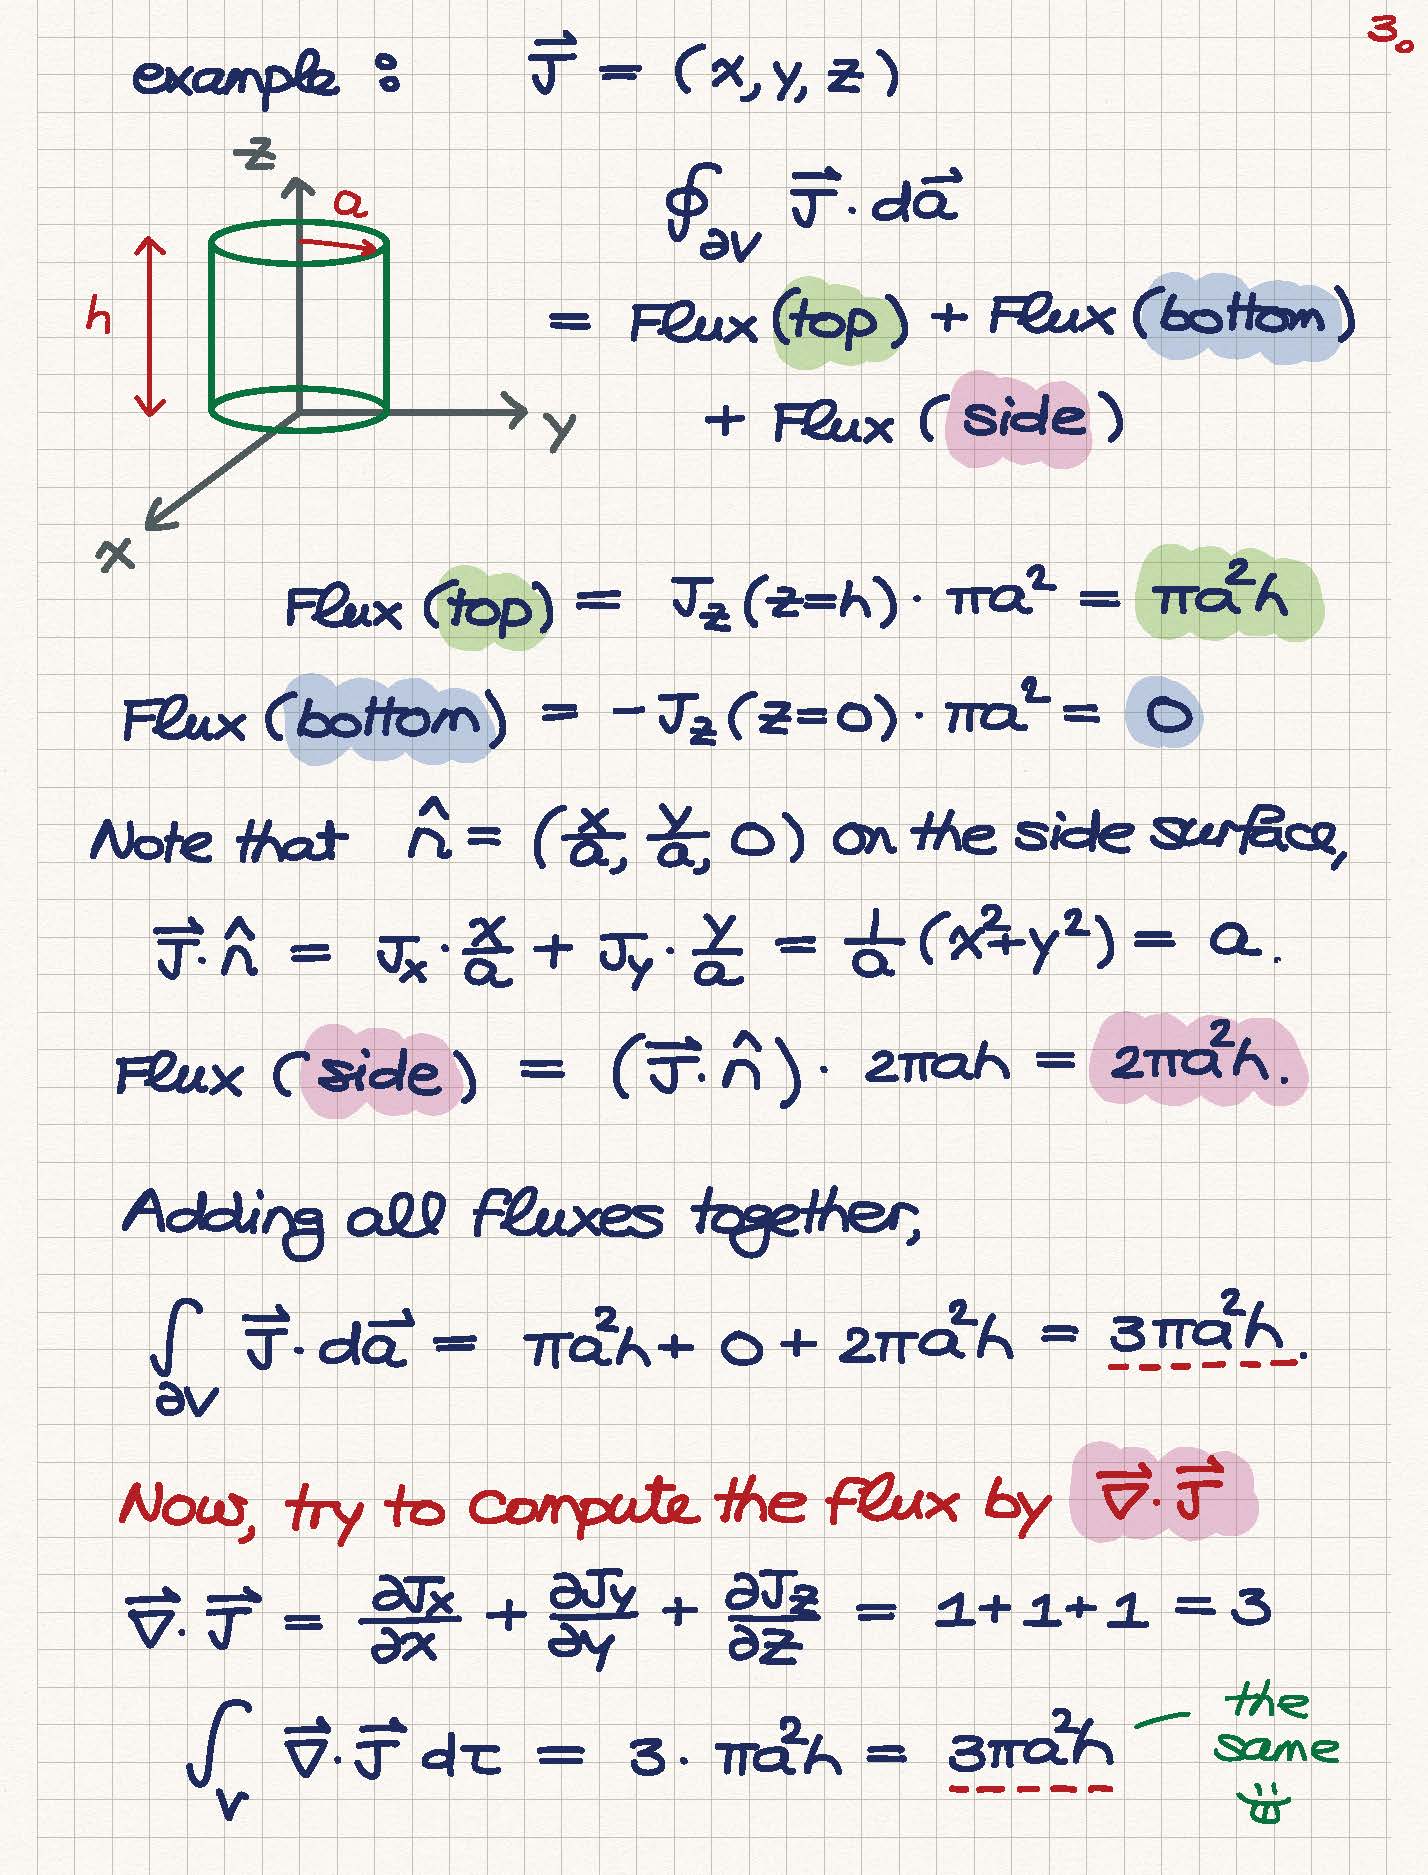 3.
example : J⃗ = (x, y, z)
z
a
h
y
x
∮_∂V J⃗ · da⃗
= Flux (top) + Flux (bottom)
+ Flux (side)
Flux (top) = J_z (z=h) · πa² = πa²h
Flux (bottom) = -J_z (z=0) · πa² = 0
Note that n̂ = (x/a, y/a, 0) on the side surface,
J⃗ · n̂ = J_x · x/a + J_y · y/a = 1/a (x²+y²) = a.
Flux (side) = (J⃗ · n̂) · 2πah = 2πa²h.
Adding all fluxes together,
∫_∂V J⃗ · da⃗ = πa²h + 0 + 2πa²h = 3πa²h.
Now, try to compute the flux by ∇⃗ · J⃗
∇⃗ · J⃗ = ∂J_x/∂x + ∂J_y/∂y + ∂J_z/∂z = 1+1+1 = 3
∫_V ∇⃗ · J⃗ dτ = 3 · πa²h = 3πa²h
the
same